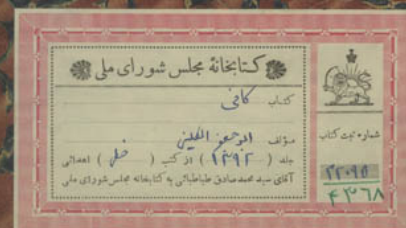 کتابخانهٔ مجلس شورای ملی
کتاب کافی
مؤلف ابو جعفر الکلینی
جلد ( ۱۳۹۲ ) از کتب ( خطی ) اهدائی
آقای سید محمد صادق طباطبائی به کتابخانه مجلس شورای ملی
شماره ثبت کتاب
۲۲۰۹۵
۴۳۶۸